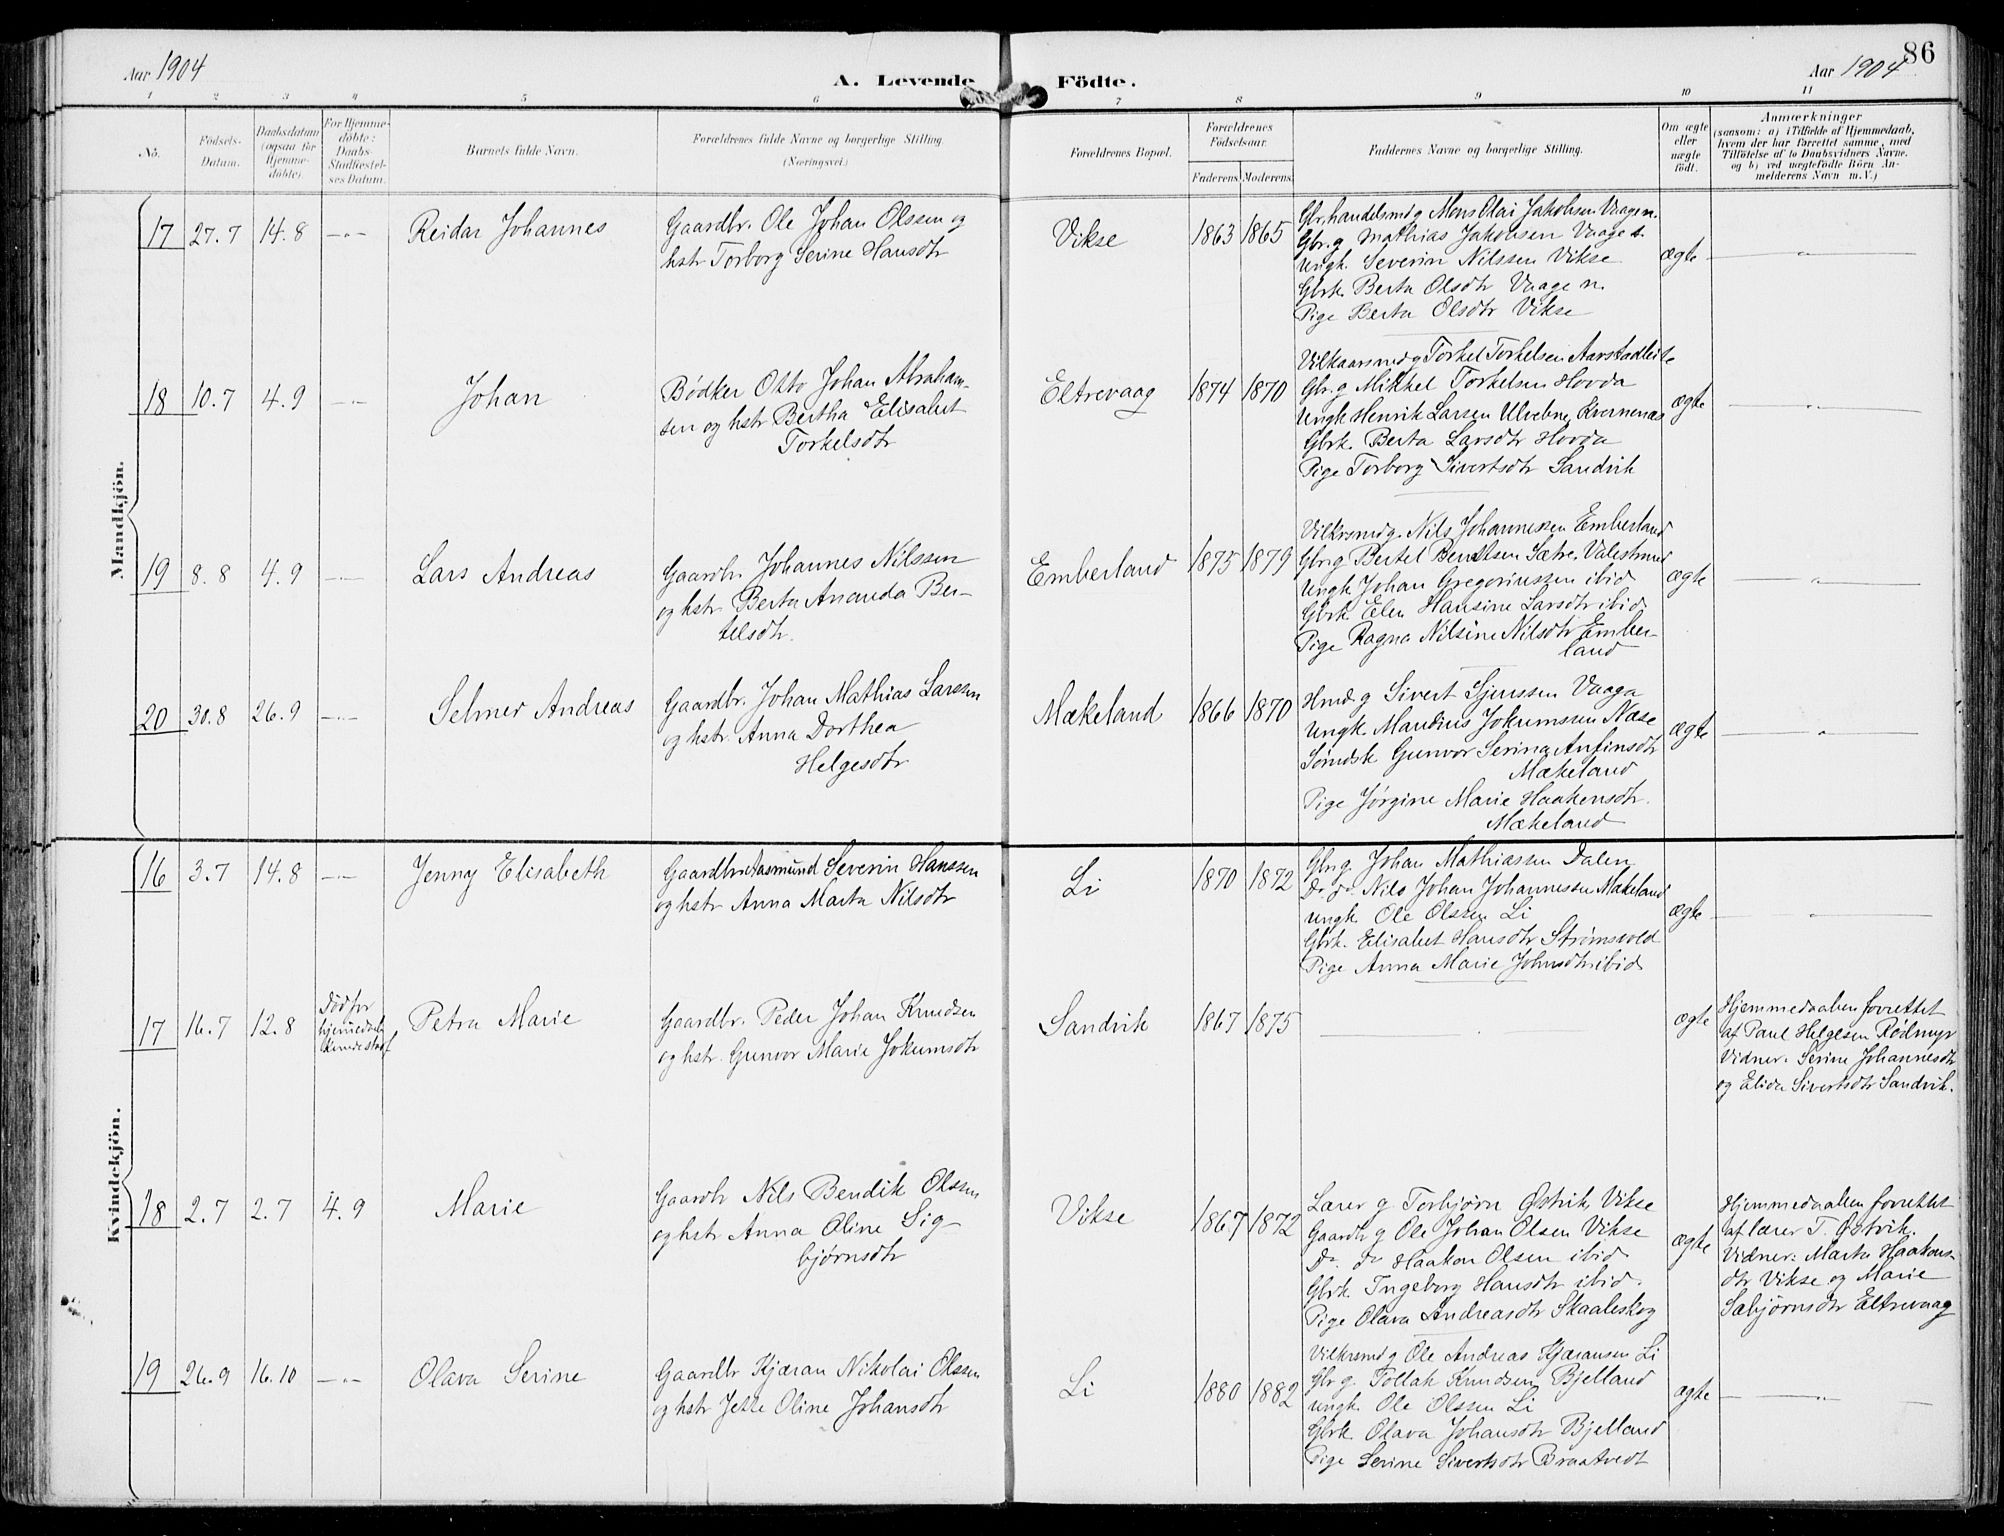 86
Aar 1904
A. Levende Födte.
Aar 1904
1 2 3 4 5 6 7 8 9 10 11
No.
Födsels-
Datum.
Daabsdatum
(ogsaa for
Hjemme-
döbte).
For Hjemme-
döbte:
Daabs-
Stadfæstel-
ses Datum.
Barnets fulde Navn.
Forældrenes fulde Navne og borgerlige Stilling.
(Næringsvei.)
Forældrenes Bopæl.
Forældrenes
Födselsaar.
Faderens. Moderens.
Faddernes Navne og borgerlige Stilling.
Om ægte
eller
uægte
født.
Anmærkninger
(saasom: a) i Tilfælde af Hjemmedaab,
hvem der har forrettet samme, med
Tilføielse af to Daabsvidners Navne,
og b) ved uægtefödte Börn An-
melderens Navn m.V.)
Mandkjön.
17 27.7 14.8 -"-
Reidar Johannes
Gaardbr. Ole Johan Olssen og
hstr Torborg Serine Hansdtr
Vikse
1863 1865
Gbr. handelsmd g Mons Olai Jakobsen Vaage n.
Gbr. g Mathias Jakobsen Vaage s.
Ungk. Severin Nilssen Vikse
Gbrk. Berta Olsdtr Vaage n.
Pige Berta Olsdtr Vikse
ægte
"
18 10.7 4.9 -"-
Johan
Bødker Otto Johan Abraham-
sen og hstr Bertha Elisabet
Torkelsdtr
Eltrevaag
1874 1870
Vilkaarsmd g Torkel Torkelsen Aarstadleite
Gbr. g Mikkel Torkelsen Hovda
Ungk Henrik Larsen Ulvebne, Kvernenæs
Gbrk. Berta Larsdtr Hovda
Pige Torborg Sivertsdtr Sandvik
ægte
"
19 8.8 4.9 -"-
Lars Andreas
Gaardbr. Johannes Nilssen
og hstr Berta Amanda Ber-
telsdtr.
Emberland
1875 1879
Vilkrsmd g. Nils Johannessen Emberland
Gbr. g Bertel Bendtsen Sætre, Valestrand
Ungk Johan Gregoriussen ibid
Gbrk Elen Hansine Larsdtr ibid.
Pige Ragna Nilsine Nilsdtr Ember-
land
ægte
"
20 30.8 26.9 -"-
Selmer Andreas
Gaardbr. Johan Mathias Larssen
og hstr. Anna Dorthea
Helgesdtr
Mækeland
1866 1870
Hmd g Sivert Sjurssen Vaaga
Ungk. Mandius Jokumssen Næse
Gunvor Serina Anfinsdtr
Mækeland
Pige Jørgine Marie Haakensdtr.
Mækeland
ægte
"
Kvindekjön.
16 3.7 14.8 -"-
Jenny Elisabeth
Gaardbr. Aasmund Severin Hanssen
og hstr Anna Marta Nilsdtr
Li
1870 1872
Gbr. g Johan Mathiassen Dalen
Do. do. Nils Johan Johannessen Mækeland
Ungk Ole Olssen Li
Gbrk. Elisabet Hansdtr Strømsvold
Pige Anna Marie Johnsdtr ibid
ægte
"
17 16.7 12.8
Død før
hjemmedaab
Petra Marie
Gaardbr. Peder Johan Knudsen
og hstr. Gunvor Marie Jokumsdtr
Sandvik
1867 1875
ægte
Hjemmedaaben forrettet
af Paul Helgesen Rødmyr
Vidner: Serine Johannesdtr
og Elida Sivertsdtr Sandvik.
18 2.7 2.7 4.9
Marie
Gaardbr Nils Bendik Olssen
og hstr Anna Oline Sig-
bjørnsdtr
Vikse
1867 1872
Lærer g Torbjørn Østrik, Vikse
Gaardbr g Ole Johan Olsen Vikse
Do. do Haakon Olsen ibid
Gbrk Ingeborg Hansdtr ibid.
Pige Olava Andreasdtr Skaaleskog
ægte
Hjemmedaaben forrettet
af lærer T. Østrik.
Vidner: Marta Haakons-
dtr Vikse og Marie
Sæbjørnsdtr Eltrevaag
19 26.9 16.10 -"-
Olava Serine
Gaardbr Kjæran Nikolai Olssen
og hstr Jette Oline Johansdtr
Li
1880 1882
Vilkrsmd g Ole Andreas Kjæransen Li
Gbr g. Tollak Knudsen Bjelland
Ungk. Ole Olssen Li
Gbrk. Olava Johansdtr Bjelland
Pige Serine Sivertsdtr Braatvedt
ægte
"